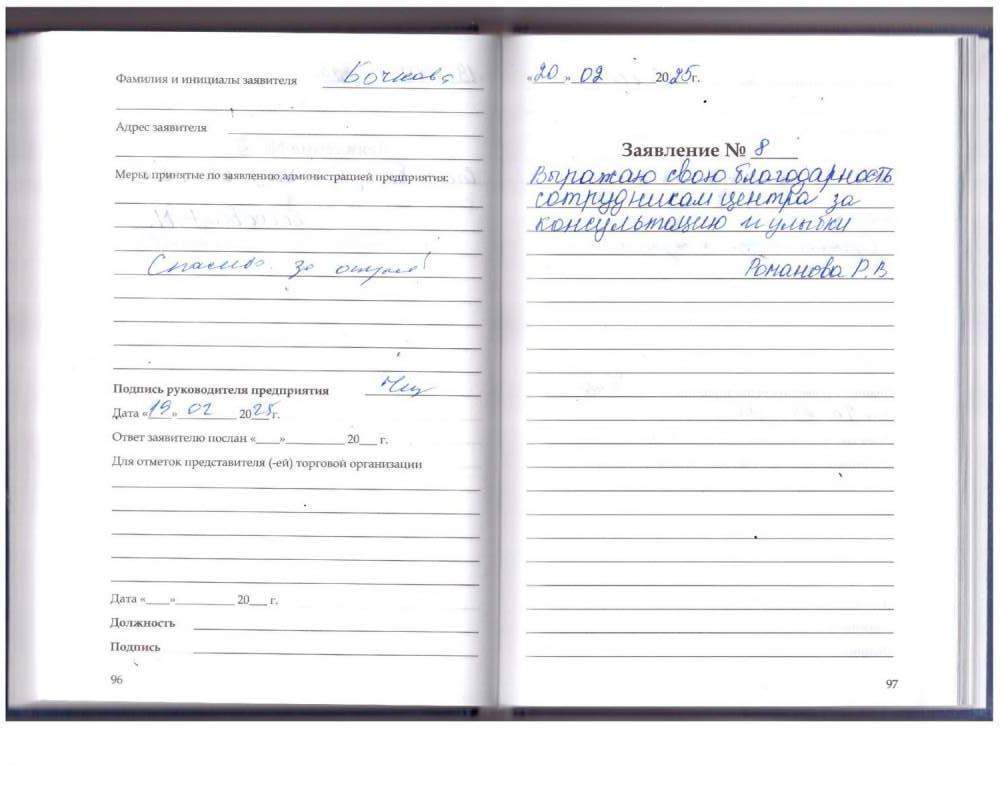 Фамилия и инициалы заявителя Бочкова
Адрес заявителя
Меры, принятые по заявлению администрацией предприятия:
Спасибо за отзыв!
Подпись руководителя предприятия
Дата «19» 02 2025г.
Ответ заявителю послан «____»__________ 20___ г.
Для отметок представителя (-ей) торговой организации
Дата «____»__________ 20___ г.
Должность
Подпись
96
«20» 02 2025г.
Заявление № 8
Выражаю свою благодарность
сотрудникам центра за
консультацию и улыбки
Романова Р.В
97